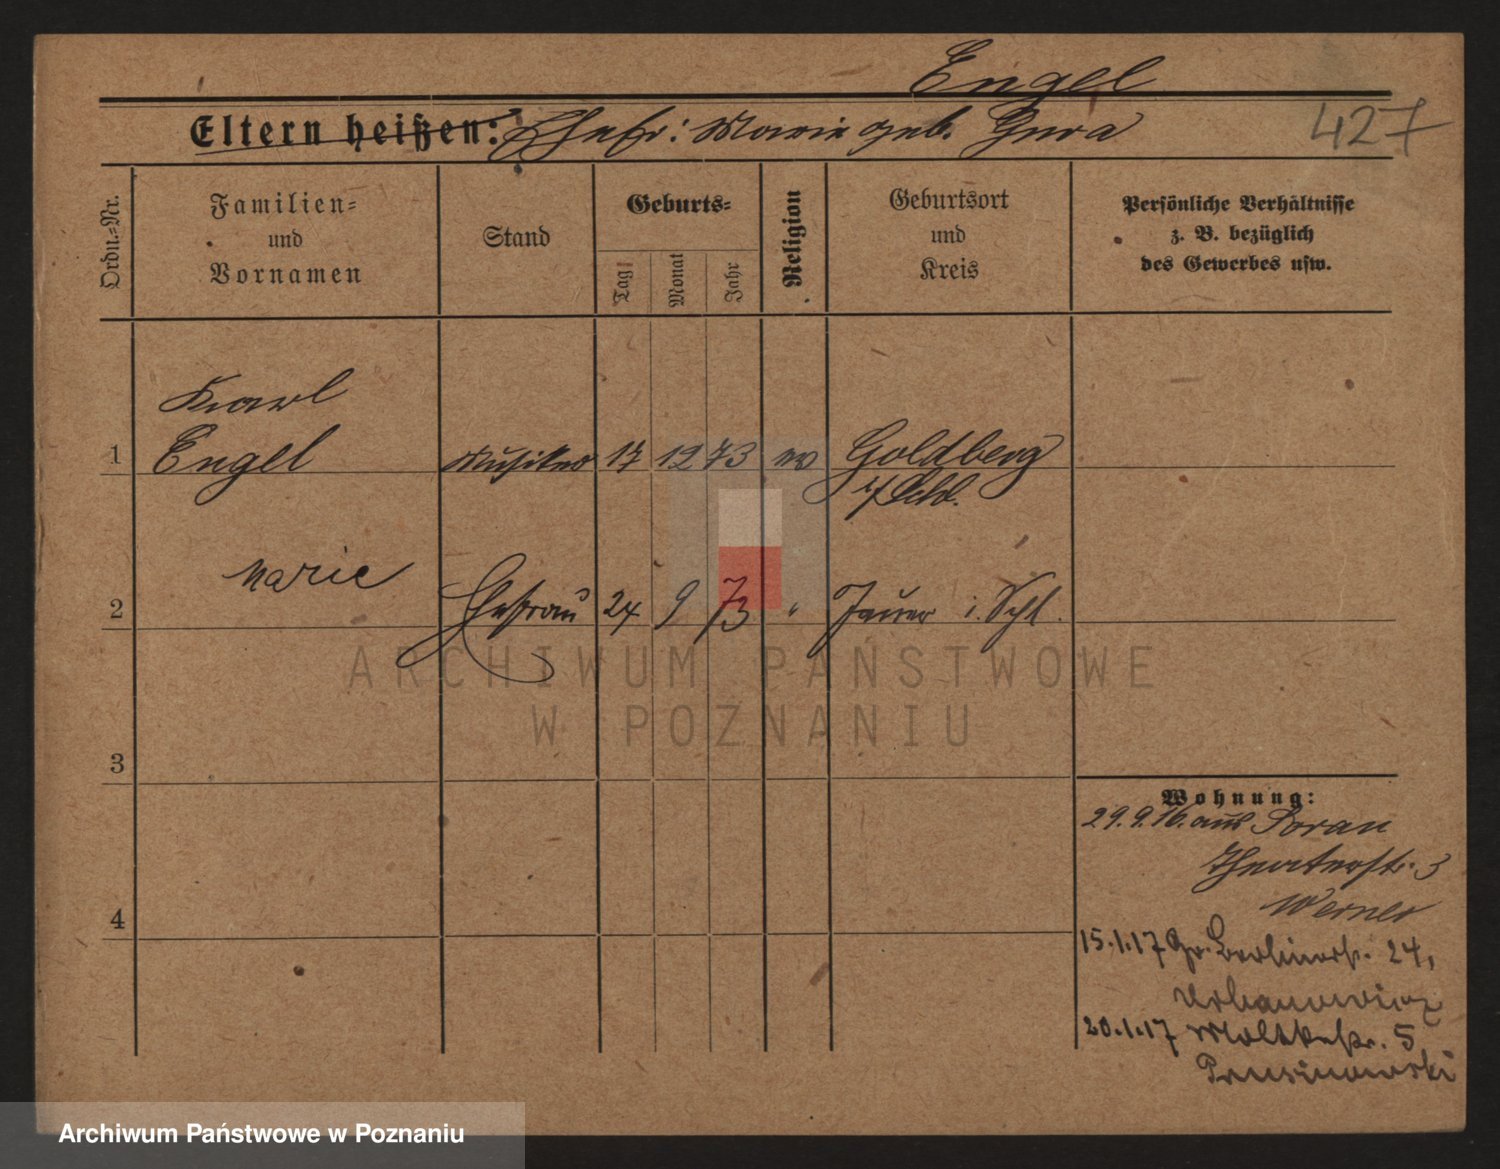 Engel
Eltern heißen: Ehefr: Marie geb. Gura
427
Ordn.-Nr.
Familien-
und
Vornamen
Stand
Geburts-
Tag
Monat
Jahr
Religion
Geburtsort
und
Kreis
Persönliche Verhältnisse
z. B. bezüglich
des Gewerbes usw.
Karl
1 Engel Musiker 17 12 73 ev Goldberg
i/Schl.
Marie
2 Ehefrau 24 9 73 " Jauer i. Schl.
ARCHIWUM PAŃSTWOWE
W POZNANIU
3
Wohnung:
29.9.16. aus Sorau
Theaterstr. 3
Werner
4
15.1.17 Gr. Berlinerstr. 24,
Urbanowicz
20.1.17 Moltkestr. 5
Prusinowski
Archiwum Państwowe w Poznaniu